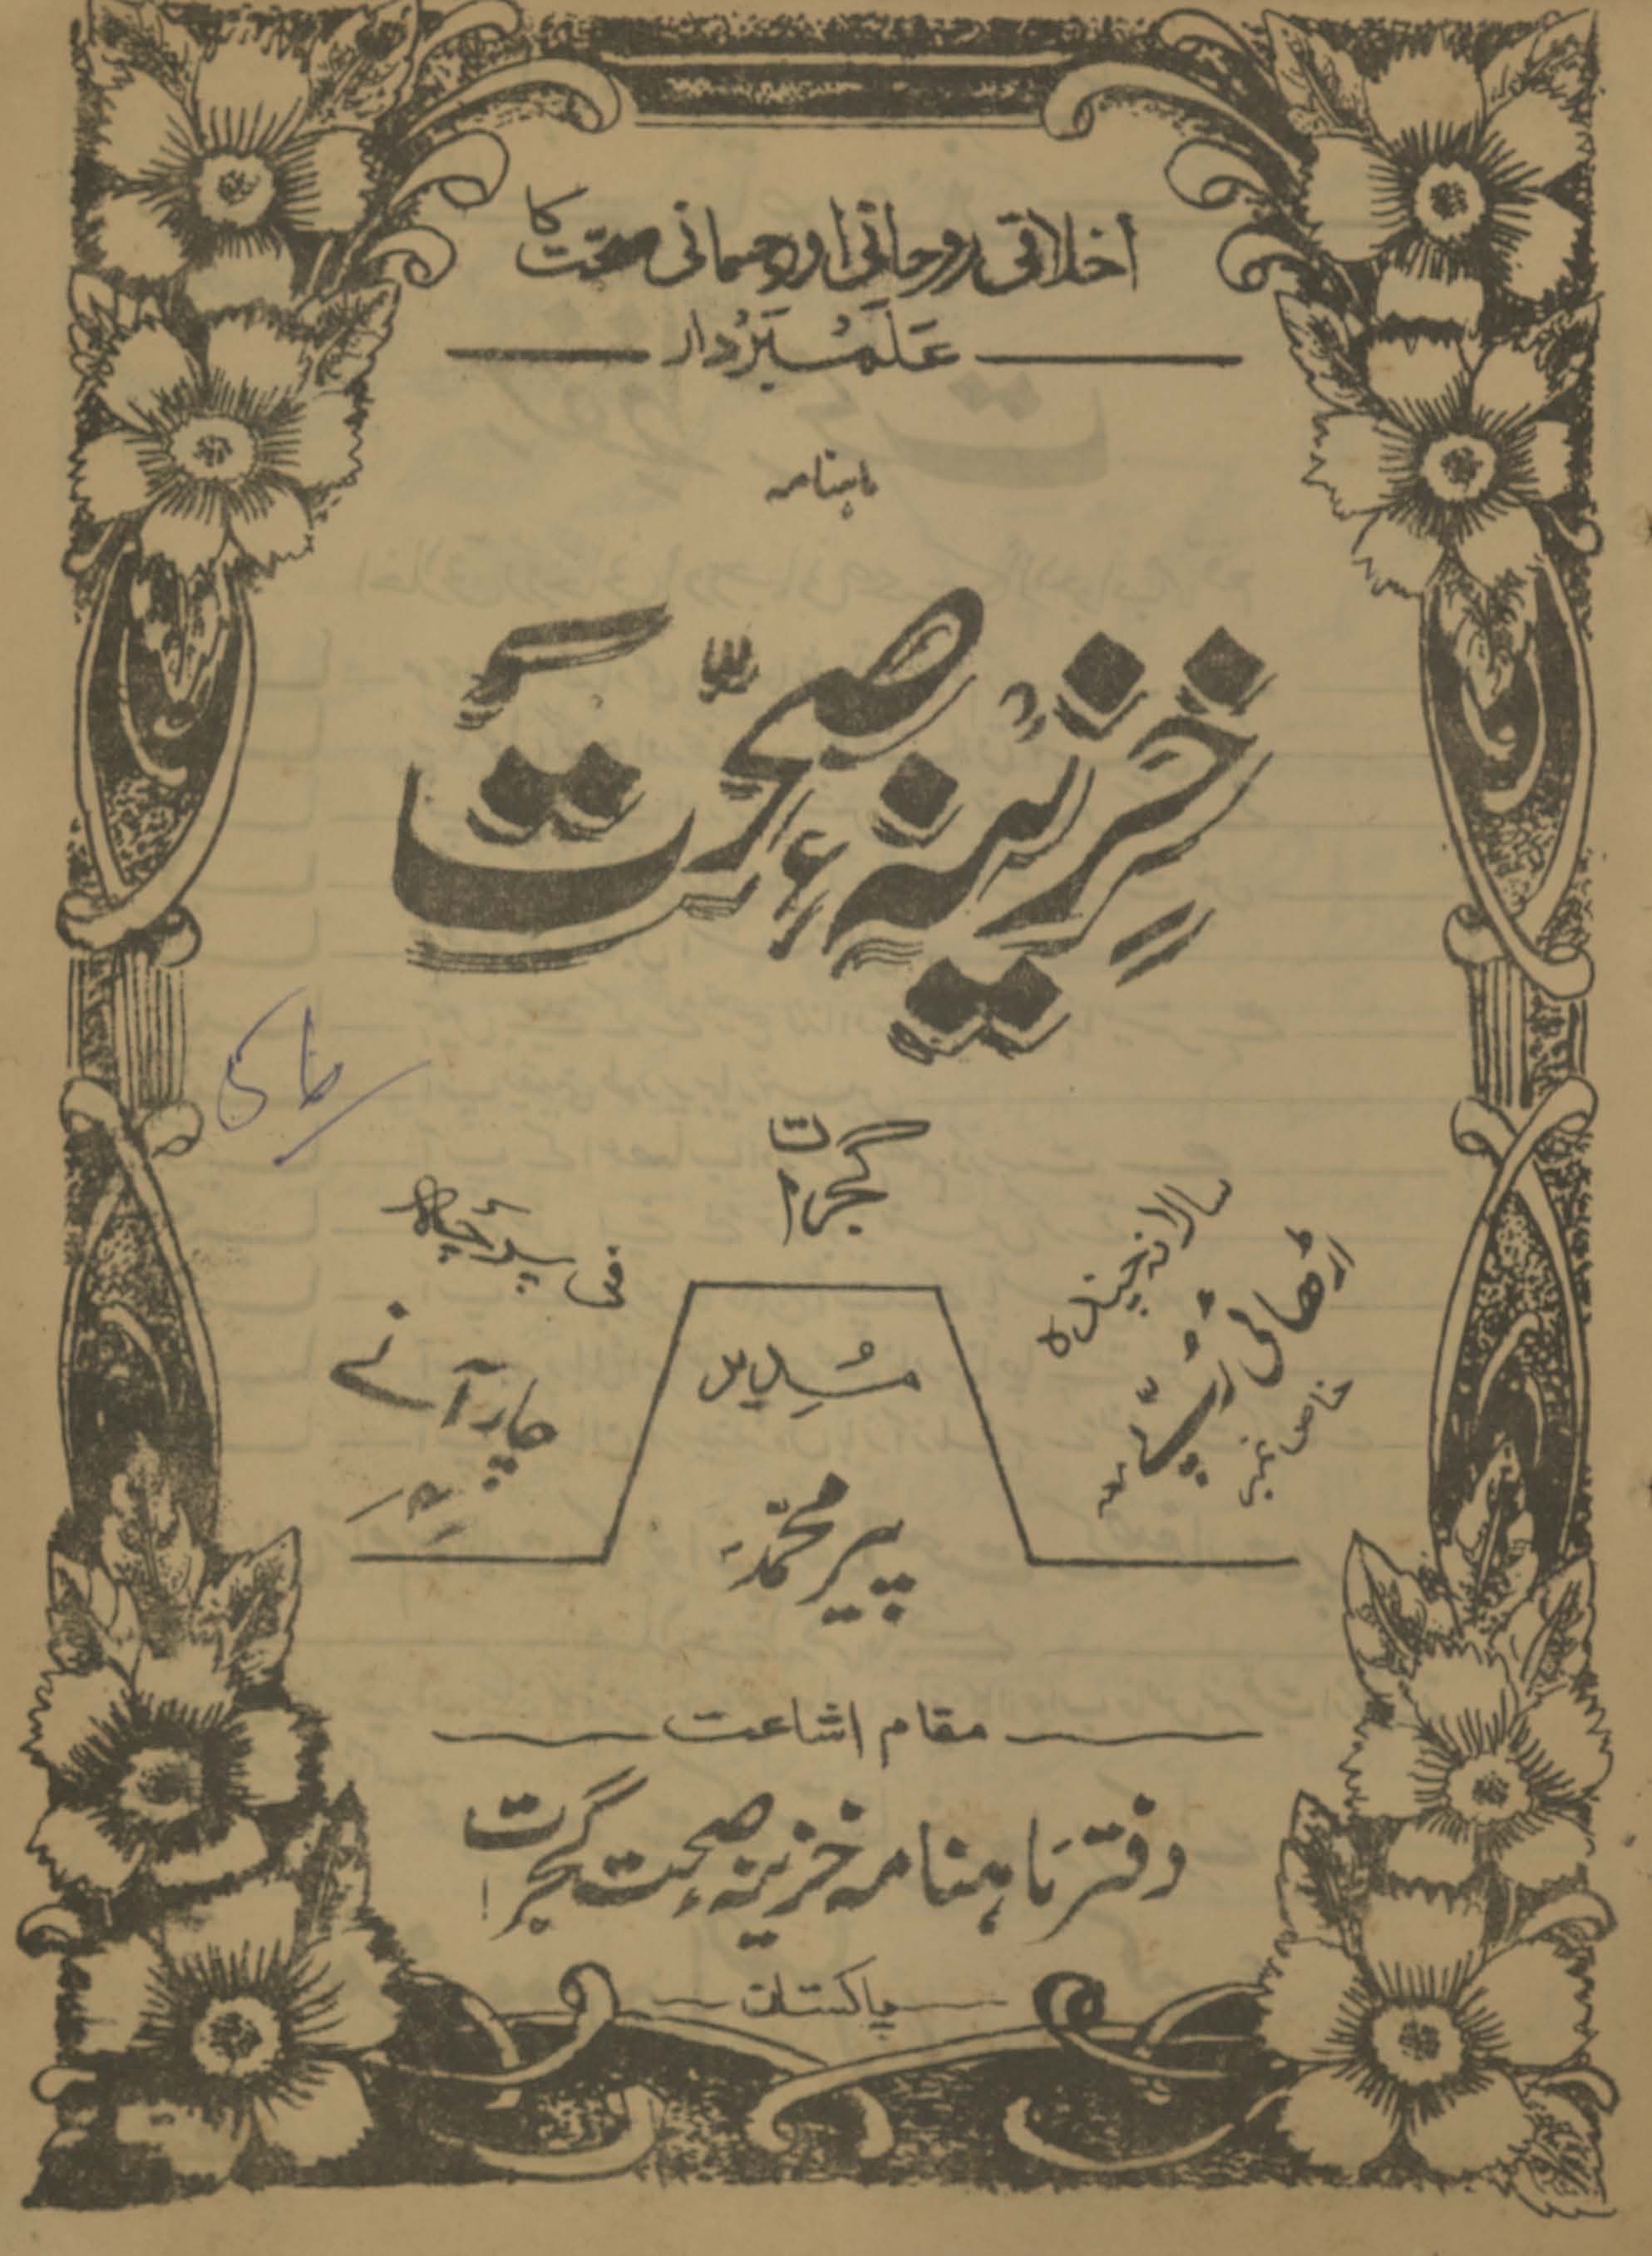 اخلاقی روحانی اور جسمانی صحّت کا
عَلَمبَرُدار
ماہنامہ
خزینۂ صحّت
گجرات
سالانہ چندہ
اڑھائی رُپّے
معہ خاص نمبر
فی پرچہ
چار آنے
مُدِیر
پیر محمّد
مقام اشاعت
دفتر ماہنامہ خزینۂ صحت گجرات
پاکستان